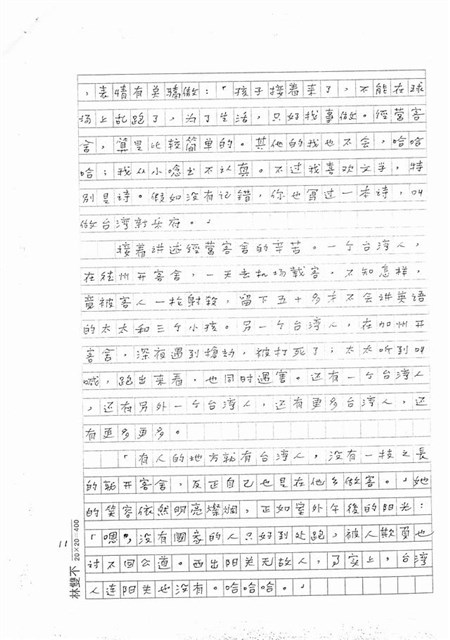 ，表情有英驕傲：「孩子接著来了，不能在球
场上乱跑了，为了生活，只好找事做。经营客
舍，算是比较简单的。其他的我也不会，哈哈
哈；我从小唸书不认真。不过我喜欢文学，特
別是诗。假如没有记错，你也寫过一本诗，叫
做台湾新乐府。」
接着讲述经营客舍的辛苦。一个台湾人，
在 州开客舍，一天去机场载客，不知怎样，
竟被客人一枪射殺，留下五十多才不会讲英语
的太太和三个小孩。另一个台湾人，在加州开
客舍，深夜遇到搶劫，被打死了；太太听到叫
喊，跑出来看，也同时遇害。还有一个台湾人
，还有另外一个台湾人，还有更多台湾人，还
有更多更多。
「有人的地方就有台湾人，没有一技之長
的就开客舍，反正自己也是在他乡做客。」她
的笑容依然明亮燦爛，正如室外午後的阳光：
「嗯，没有國家的人只好到处跑，被人欺負也
讨不回公道。西出阳关无故人，事实上，台湾
人连阳关也没有。哈哈哈。」
11
林雙不 20×20=400